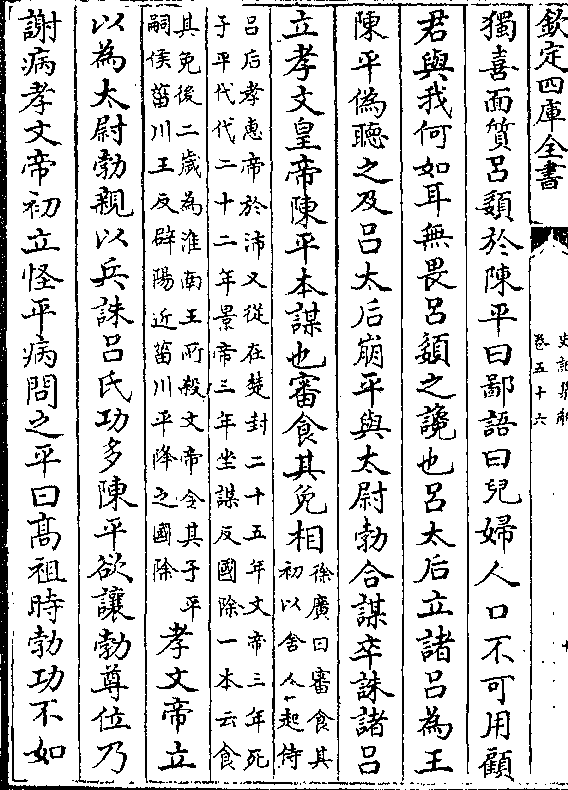 欽定四庫全書
史記集解
卷五十六
獨喜面質呂嬃於陳平曰鄙語曰兒婦人口不可用顧
君與我何如耳無畏呂嬃之讒也呂太后立諸呂為王
陳平偽聽之及呂太后崩平與太尉勃合謀卒誅諸呂
立孝文皇帝陳平本謀也審食其免相徐廣曰審食其初以舍人起侍
呂后孝惠帝於沛又從在楚封二十五年文帝三年死子平代代二十二年景帝三年坐謀反國除一本云食
其免後二歲為淮南王所殺文帝令其子平嗣侯菑川王反辟陽近菑川平降之國除孝文帝立
以為太尉勃親以兵誅呂氏功多陳平欲讓勃尊位乃
謝病孝文帝初立怪平病問之平曰髙祖時勃功不如